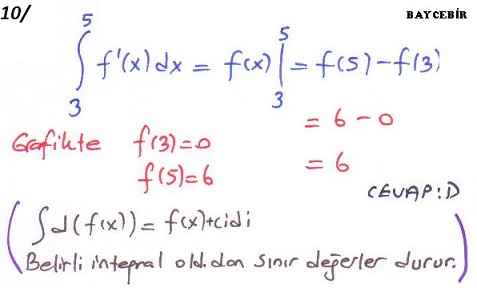 10/ BAYCEBİR
∫₃⁵ f'(x) dx = f(x) |₃⁵ = f(5) - f(3)
= 6 - 0
Grafikte f(3)=0
f(5)=6
= 6
CEVAP: D
(∫d(f(x)) = f(x)+c idi
Belirli integral old.dan sınır değerler durur.)